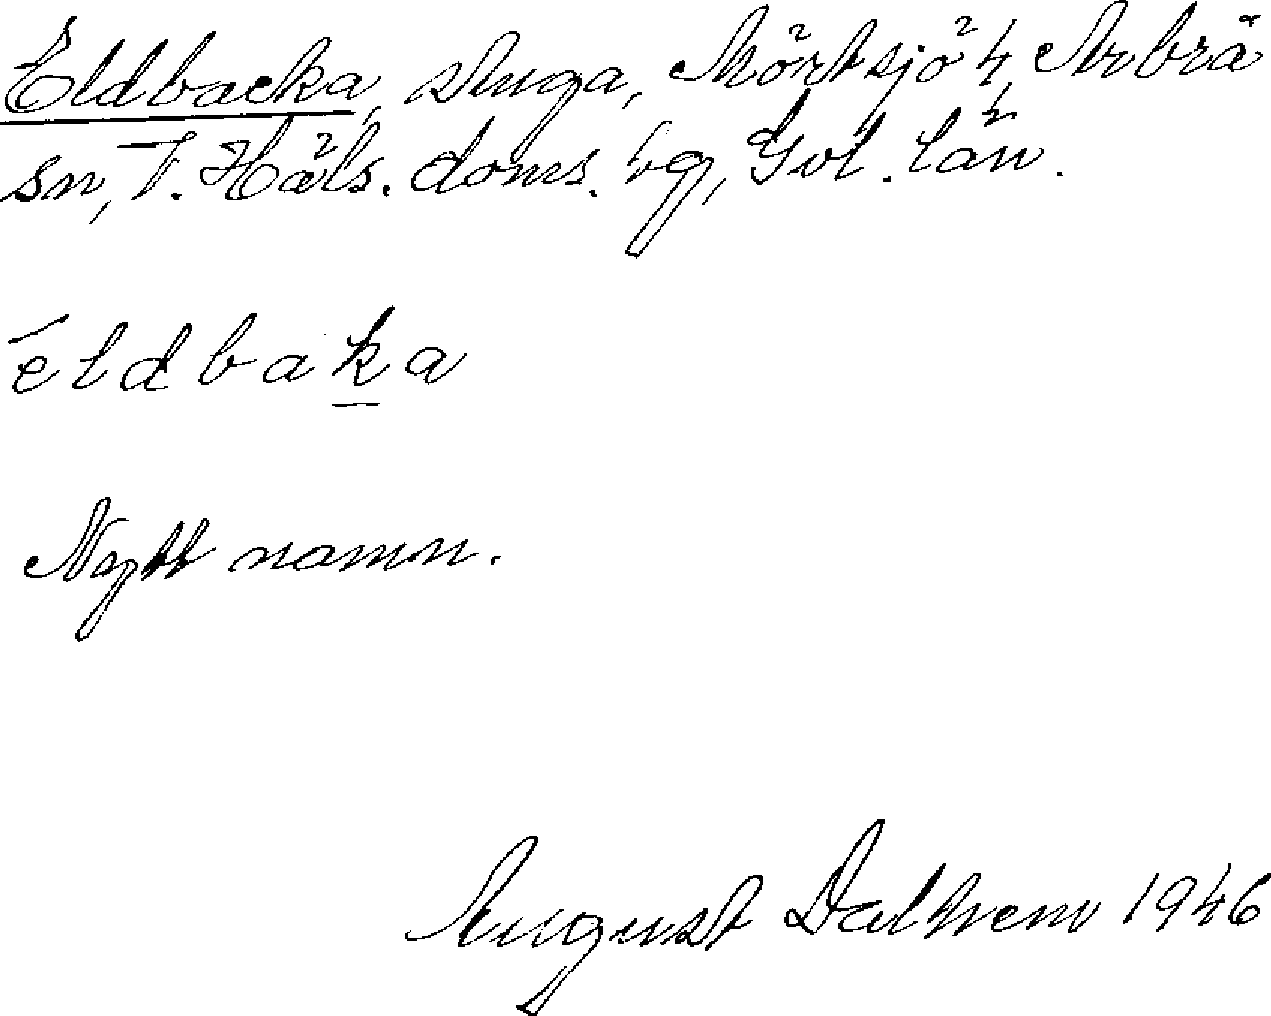 Eldbacka, stuga, Mörtsjö 4, Arbrå
sn, V. Häls. doms. bg, Gvl. län.
éldbaka
Nytt namn.
August Dalhem 1946